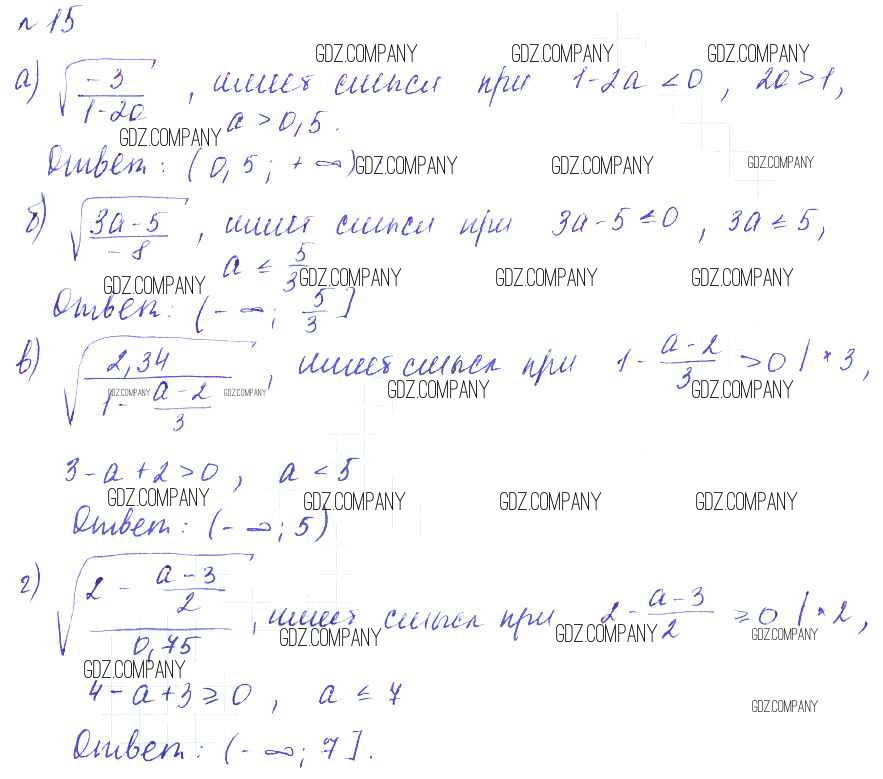 № 15
GDZ.COMPANY GDZ.COMPANY GDZ.COMPANY
а) √(-3/(1-2a)), имеет смысл при 1-2a < 0, 2a > 1,
a > 0,5.
GDZ.COMPANY
Ответ: (0,5; +∞) GDZ.COMPANY GDZ.COMPANY GDZ.COMPANY
б) √((3a-5)/-8), имеет смысл при 3a-5 ≤ 0, 3a ≤ 5,
a ≤ 5/3
GDZ.COMPANY GDZ.COMPANY GDZ.COMPANY GDZ.COMPANY
Ответ: (-∞; 5/3]
в) √(2,34/(1-(a-2)/3)), имеет смысл при 1-(a-2)/3 > 0 | * 3,
GDZ.COMPANY GDZ.COMPANY GDZ.COMPANY GDZ.COMPANY
3-a+2 > 0, a < 5
GDZ.COMPANY GDZ.COMPANY GDZ.COMPANY GDZ.COMPANY
Ответ: (-∞; 5)
г) √((2-(a-3)/2)/0,75), имеет смысл при 2-(a-3)/2 ≥ 0 | * 2,
GDZ.COMPANY GDZ.COMPANY GDZ.COMPANY
GDZ.COMPANY
4-a+3 ≥ 0, a ≤ 7
GDZ.COMPANY
Ответ: (-∞; 7].